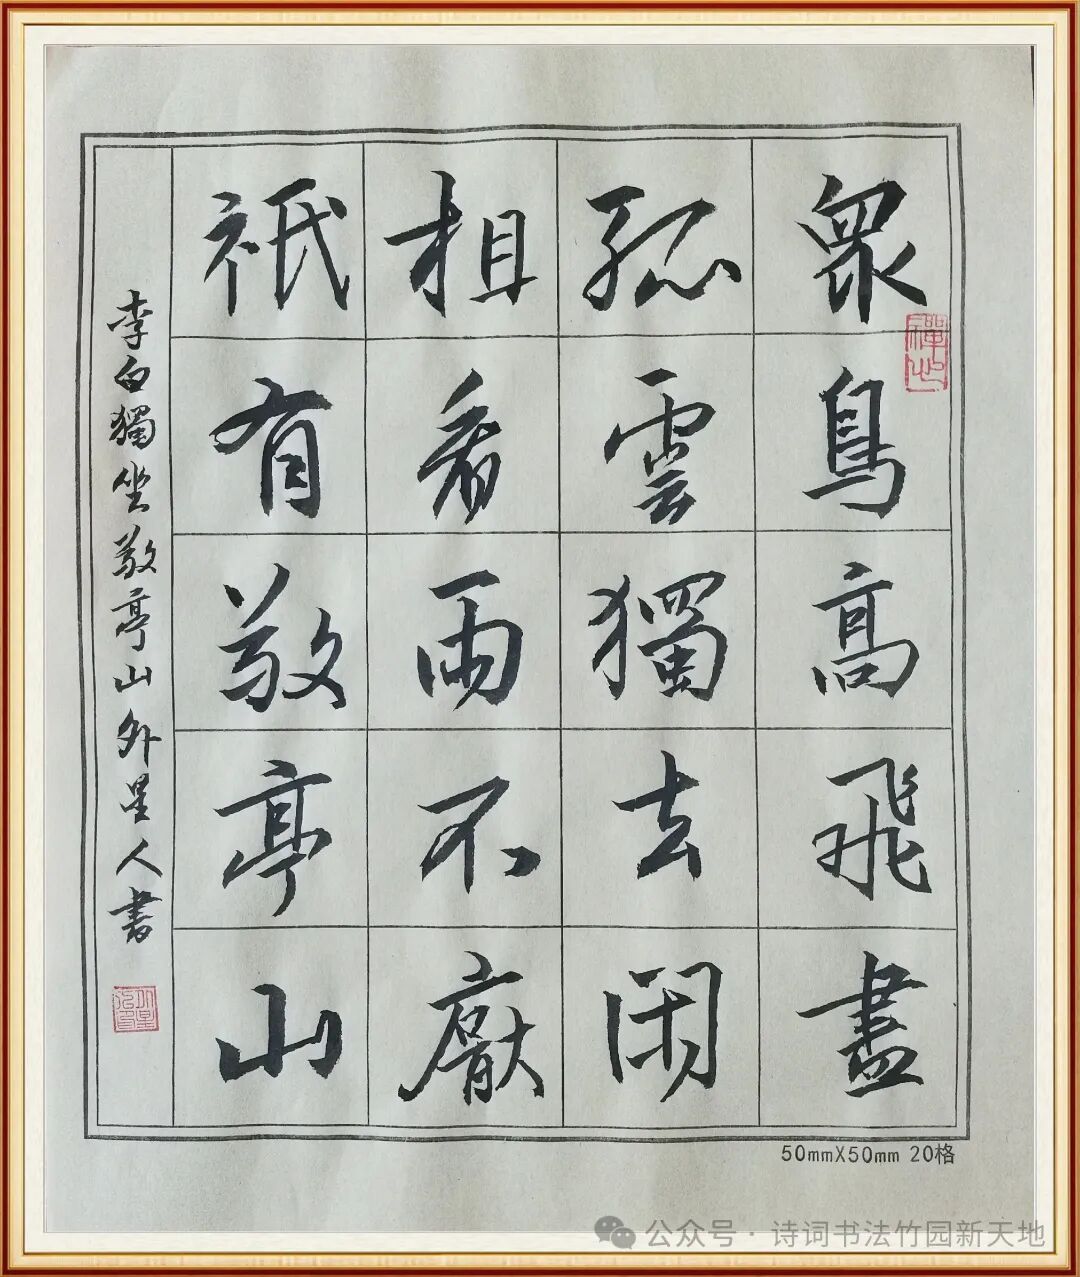 衆鳥高飛盡
孤雲獨去閑
相看兩不厭
祇有敬亭山
李白獨坐敬亭山外星人書
禪心
50mmX50mm 20格
公众号·诗词书法竹园新天地